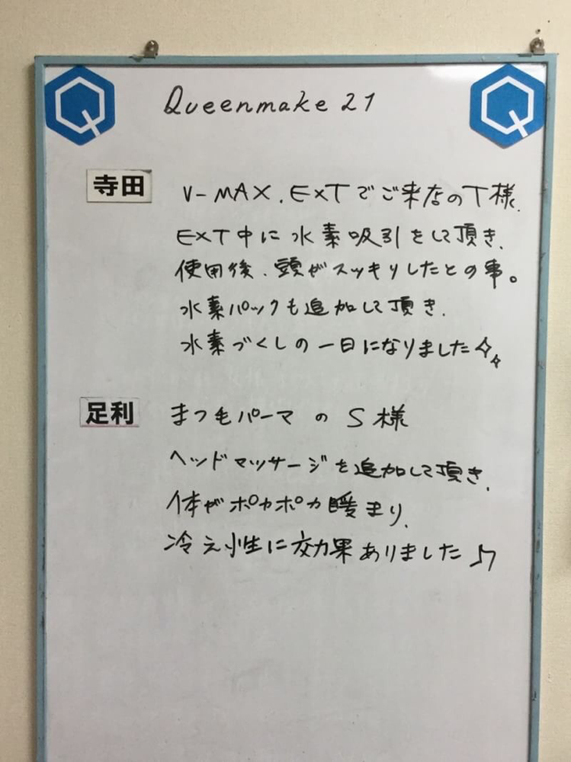 Queenmake 21
寺田
V-MAX.EXTでご来店のT様.
EXT中に水素吸引をして頂き.
使用後.頭がスッキリしたとの事。
水素パックも追加して頂き.
水素づくしの一日になりました✧✧
足利
まつ毛パーマのS様
ヘッドマッサージを追加して頂き.
体がポカポカ暖まり.
冷え性に効果ありました♪